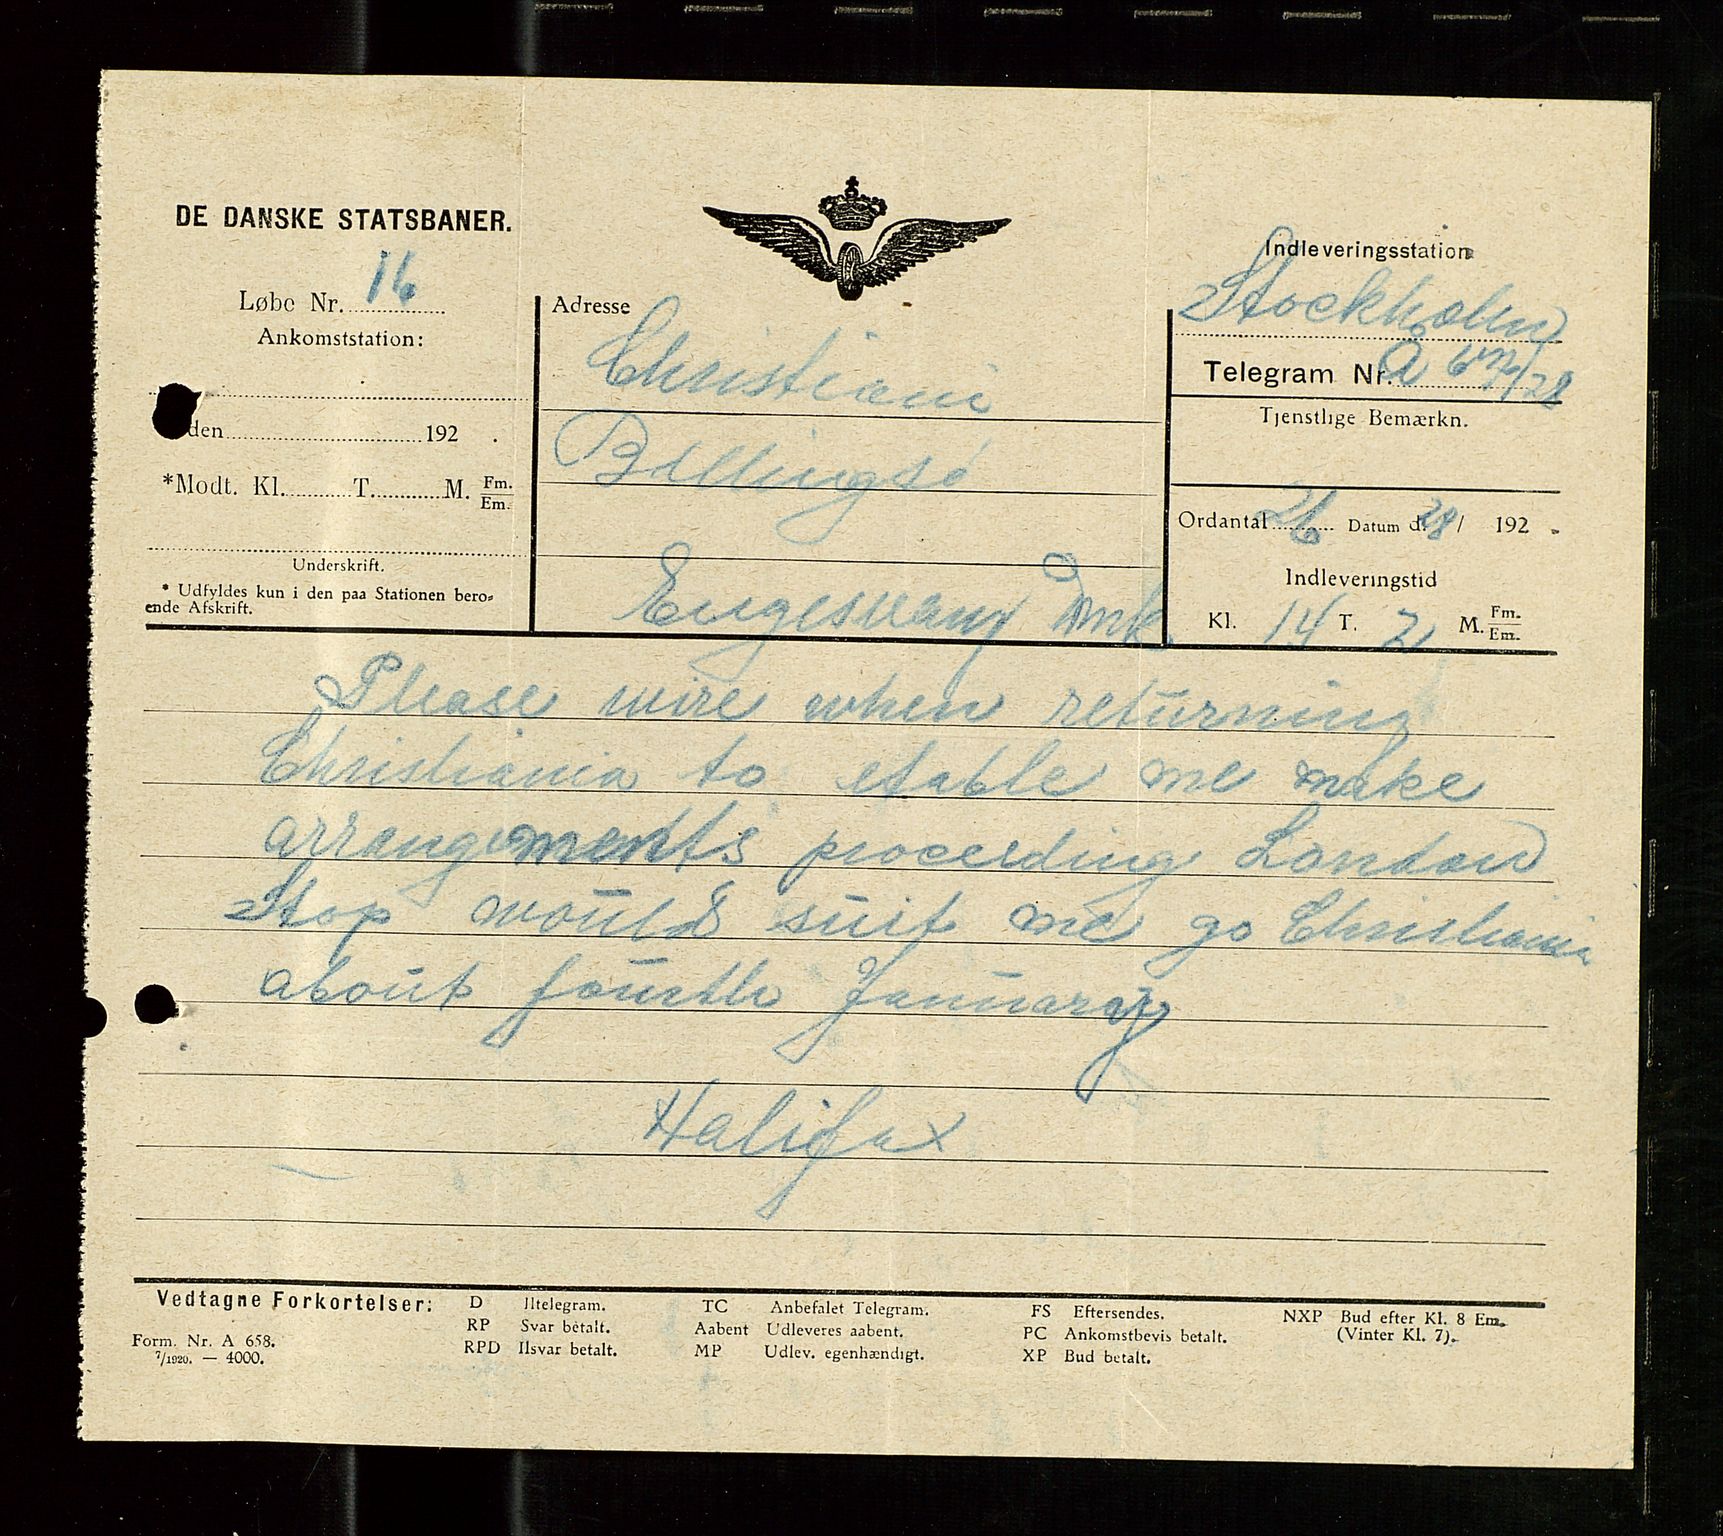 DE DANSKE STATSBANER.
Løbe Nr. 16
Ankomststation:
den 192 .
*Modt. Kl. T. M. Fm.
Em.
Underskrift.
* Udfyldes kun i den paa Stationen bero=
ende Afskrift.
Adresse
Christiani
Billingsö
Engesvang Dmk.
Indleveringsstation
Stockholm
Telegram Nr. Å
Tjenstlige Bemærkn.
Ordantal 26 Datum d. 28/ 192 .
Indleveringstid
Kl. 14 T. 2 M. Fm.
Em.
Please wire when returning
Christiania to etable me make
arrangements proceeding London
Stop would suit me go Christiania
about fourth January
Halifax
Vedtagne Forkortelser:
Form. Nr. A 658.
7/1920. — 4000.
D Iltelegram.
RP Svar betalt.
RPD Ilsvar betalt.
TC Anbefalet Telegram.
Aabent Udleveres aabent.
MP Udlev. egenhændigt.
FS Eftersendes.
PC Ankomstbevis betalt.
XP Bud betalt.
NXP Bud efter Kl. 8 Em.
(Vinter Kl. 7).